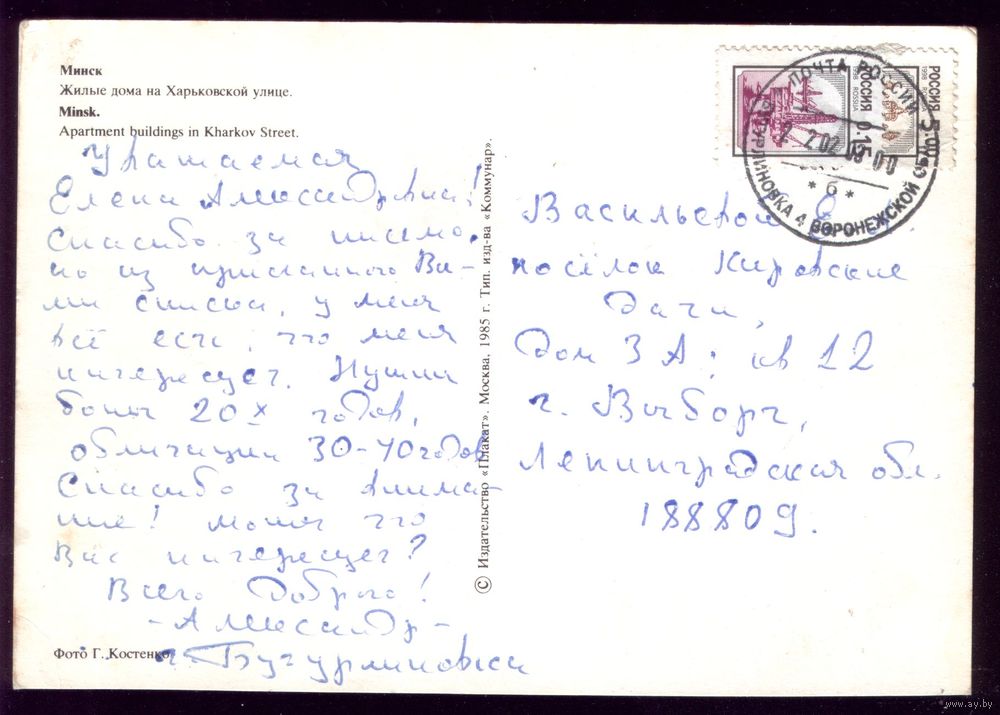 Минск
Жилые дома на Харьковской улице.
Minsk.
Apartment buildings in Kharkov Street.
Уважаемая
Елена Александровна!
Спасибо за письмо,
но из присланного Ва-
ми списка, у меня
всё есть, что меня
интересует. Нужны
боны 20х годов,
облигации 30-40 годов
Спасибо за внима-
ние! Может что
Вас интересует?
Всего Доброго!
- Александр -
г. Бутурлиновка
Фото Г. Костенко
© Издательство «Плакат». Москва. 1985 г. Тип. изд-ва «Коммунар».
РОССИЯ 0.15
1998 ROSSIA
РОССИЯ 5.00
1998
ПОЧТА РОССИИ
БУТУРЛИНОВКА 4 ВОРОНЕЖСКОЙ
* б *
Васильевой
посёлок Кировские
Дачи,
Дом 3 А; кв 12
г. Выборг,
Ленинградская обл.
188809.
www.ay.by